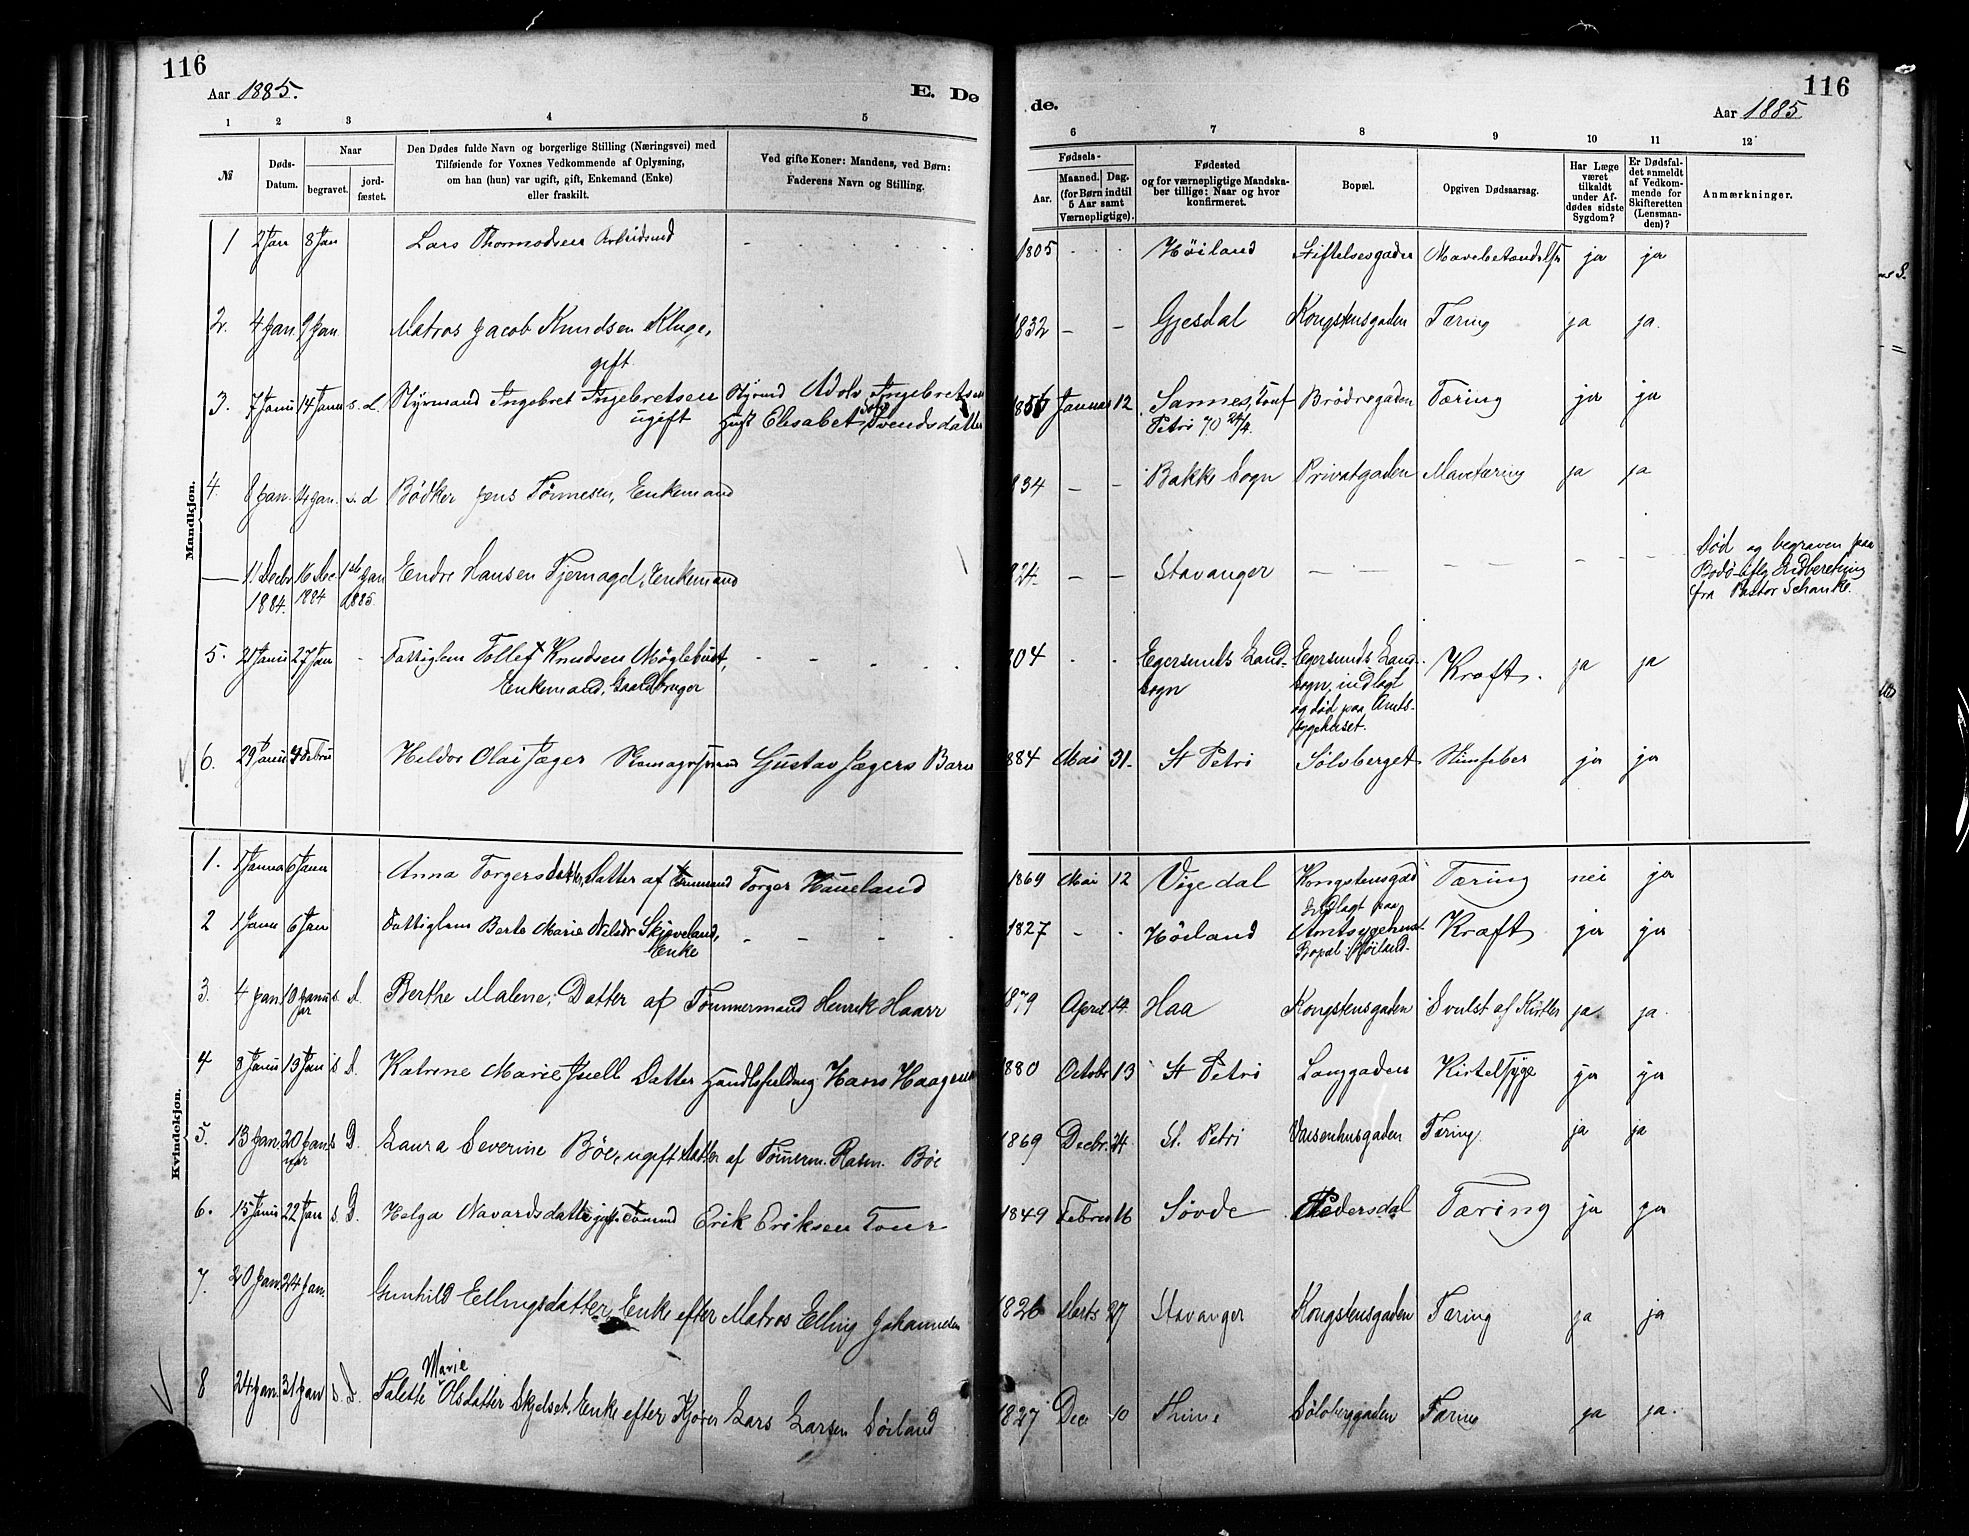 116
116
Aar 1885.
E. De
de.
Aar 1885
1 2 3 4 5 6 7 8 9 10 11 12
№
Døds-Datum.
Naar
begravet.
jord-fæstet.
Den Dødes fulde Navn og borgerlige Stilling (Næringsvei) med
Tilføiende for Voxnes Vedkommende af Oplysning,
om han (hun) var ugift, gift, Enkemand (Enke)
eller fraskilt.
Ved gifte Koner: Mandens, ved Børn:
Faderens Navn og Stilling.
Fødsels-
Aar.
Maaned. Dag.
(for Børn indtil
5 Aar samt
Værnepligtige).
Fødested
og for værnepligtige Mandska-
ber tillige: Naar og hvor
konfirmeret.
Bopæl.
Opgiven Dødsaarsag.
Har Læge
været
tilkaldt
under Af-
dødes sidste
Sygdom?
Er Dødsfal-
det anmeldt
af Vedkom-
mende for
Skifteretten
(Lensman-
den)?
Anmærkninger.
Mandkjøn.
1 2 Jan 8 Jan Lars Thormodsen Arbeidsmd - 1805 Høiland Stiftelsesgaden Mavebetændelse ja ja
2. 4 Jan. 9 Jan. Matros Jacob Knudsen Kluge, 1832 - - Gjesdal Kongstensgaden Tæring ja ja.
gift
3. 7 Janu 14 Janu s. d. Styrmand Ingebret Ingebretsen Styrmd Adolv Ingebretsen Januar 12 Sannes, Conf Brødregaden Tæring ja ja
ugift Elisabet Svendsdatter Petri 70 24/4.
4. 8 Jan. 14 Jan. s. d Bødker Jens Tønnesen, Enkemand 834 - - Bakke Sogn Privatgaden Mavetæring ja ja
— 11 Decbr 16 Dec 1ste Jan Endre Hansen Fjernagel, Enkemand 824. - - Stavanger - - - - - Død og begraven paa
1884. 1884 1885. Bodø iflg Indberetning
fra Pastor Schanke.
5. 21 Janu 27 Jan - Fattiglem Tollef Knudsen Møglebust, - - - 804 Egersunds Land- Egersunds Land- Kræft. ja ja
Enkemand, Gaardbruger sogn sogn, indlagt
og død paa Amts-
sygehuset.
6. 29 Janu 4 Febru Heldor Olai Jæger Gustav Jægers Barn 884 Mai 31. St Petri Sølvberget ja ja
Kvindekjøn.
1. 1 Janua 6 Janu Anna Torgersdatter, Datter af Torger Haueland 1869 Mai 12 Vigedal Kongstensgad Tæring nei ja
2 1 Janu 6 Jan Fattiglem Berte Marie Nilsdr Skjæveland, - - - 1827 - - Høiland Indlagt paa Kræft ja ja
Enke Amtsygehuset.
Bopæl: Høiland.
3. 4 Jan. 10 Janu s. d. Berthe Malene, Datter af Tømmermand Henrik Haarr 1879 April 14. Haa Kongstensgaden Svulst af Kirtler ja. ja.
ar
4 8 Janu 13 Jan s. D. Katrine Marie Juell Datter Handlsfuldmg Hans Haagensen 1880 Octobr 13 St Petri Langgaden Kirtelsyge ja ja
5. 13 Jan. 20 Jan s. D. Laura Severine Bøe, ugift Datter af Tømerm. Rasm. Bøe 1869 Decbr. 24. St. Petri Vaisenhusgaden Tæring. ja ja
uar
6. 15 Janu 22 Jan s. D. Helga Navardsdatter gift Tømmd Erik Eriksen Tour 1849 Febru 16 Søvde Pedersdal Tæring ja ja
7. 20 Jan. 24 Jan. Gunhild Ellingsdatter, Enke efter Matros Elling Johannesen 1826 Marts 27 Stavanger Kongstensgaden Tæring ja ja
Marie
8 24 Jan. 31 Jan s. d. Talette Olsdatter Skjelset. Enke efter Kjører Lars Larsen Søiland 1827 Dec 10 Thime Sølvberggaden Tæring ja ja.